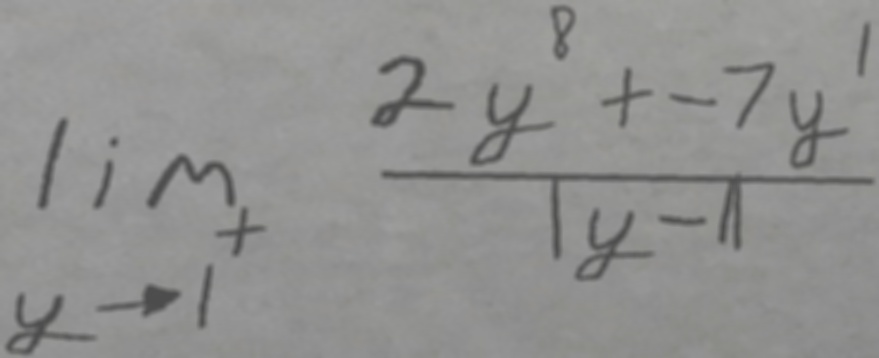 \lim_{y \to 1^+} \frac{2y^8 + -7y^1}{|y-1|}